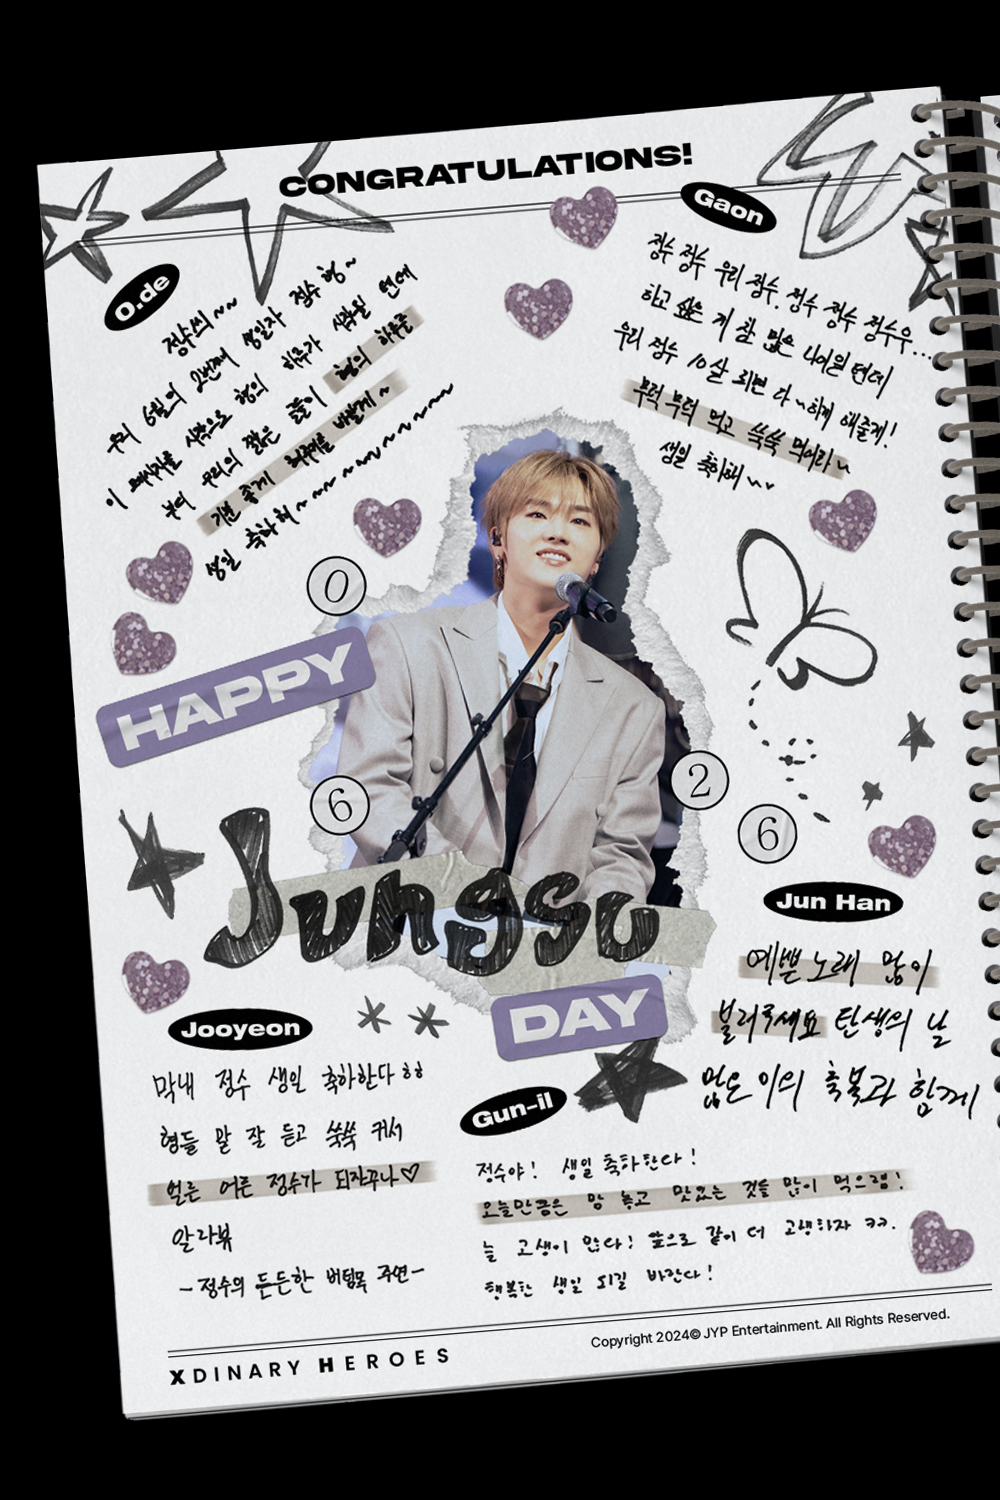 CONGRATULATIONS!
O.de
정수씨~~
우리 6월의 2번째 생일자 정수형~
이 메시지를 시작으로 형의 하루가 시작될 텐데
부디 우리의 짧은 글들이 형의 하루를
기분 좋게 하루를 바랄게~
생일 축하해~~~~~~~~~~
Gaon
정수 정수 우리 정수, 정수 정수 정수우...
하고 싶은 게 참 많은 나이일 텐데
우리 정수 10살 되면 다~하게 해줄게!
무럭무럭 먹고 쑥쑥 먹어라~
생일 축하해~♥
0
HAPPY
6
2
6
Jungsu
DAY
Jun Han
예쁜 노래 많이
불러주세요 탄생의 날
많은 이의 축복과 함께
Jooyeon
막내 정수 생일 축하한다ㅎㅎ
형들 말 잘 듣고 쑥쑥 커서
얼른 어른 정수가 되자꾸나♡
알라뷰
-정수의 든든한 버팀목 주연-
Gun-il
정수야! 생일 축하한다!
오늘만큼은 맘 놓고 맛있는 것을 많이 먹으렴!
늘 고생이 많다! 앞으로 같이 더 고생하자 ㅋㅋ.
행복한 생일 되길 바란다!
XDINARY HEROES
Copyright 2024© JYP Entertainment. All Rights Reserved.